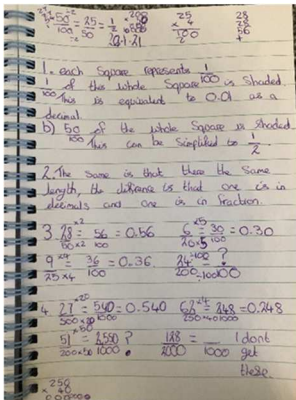 50/100 = 25/50 = 1/2
25 × 4 100
28 28 56 +
1. each Square represents 1/100
1/100 of this whole Square is Shaded.
This is equivalent to 0.01 as a
decimal.
b) 50/100 of the whole Square is Shaded
This can be Simplified to 1/2
2. The Same is that there the Same
length, the diference is that one is in
decimals and one is in fraction.
3. 28/50 ×2/×2 = 56/100 = 0.56 6/20 ×5/×5 = 30/100 = 0.30
9/25 ×4/×4 = 36/100 = 0.36 24/200 ÷100 = ?/100
4 27/500 ×20/×20 = 540/1000 = 0.540 62/250 ×4/×4 = 248/1000 = 0.248
51/200 ×50/×50 = 2550/1000 ? 128/2000 = /1000 I dont
get
these.
× 250 40